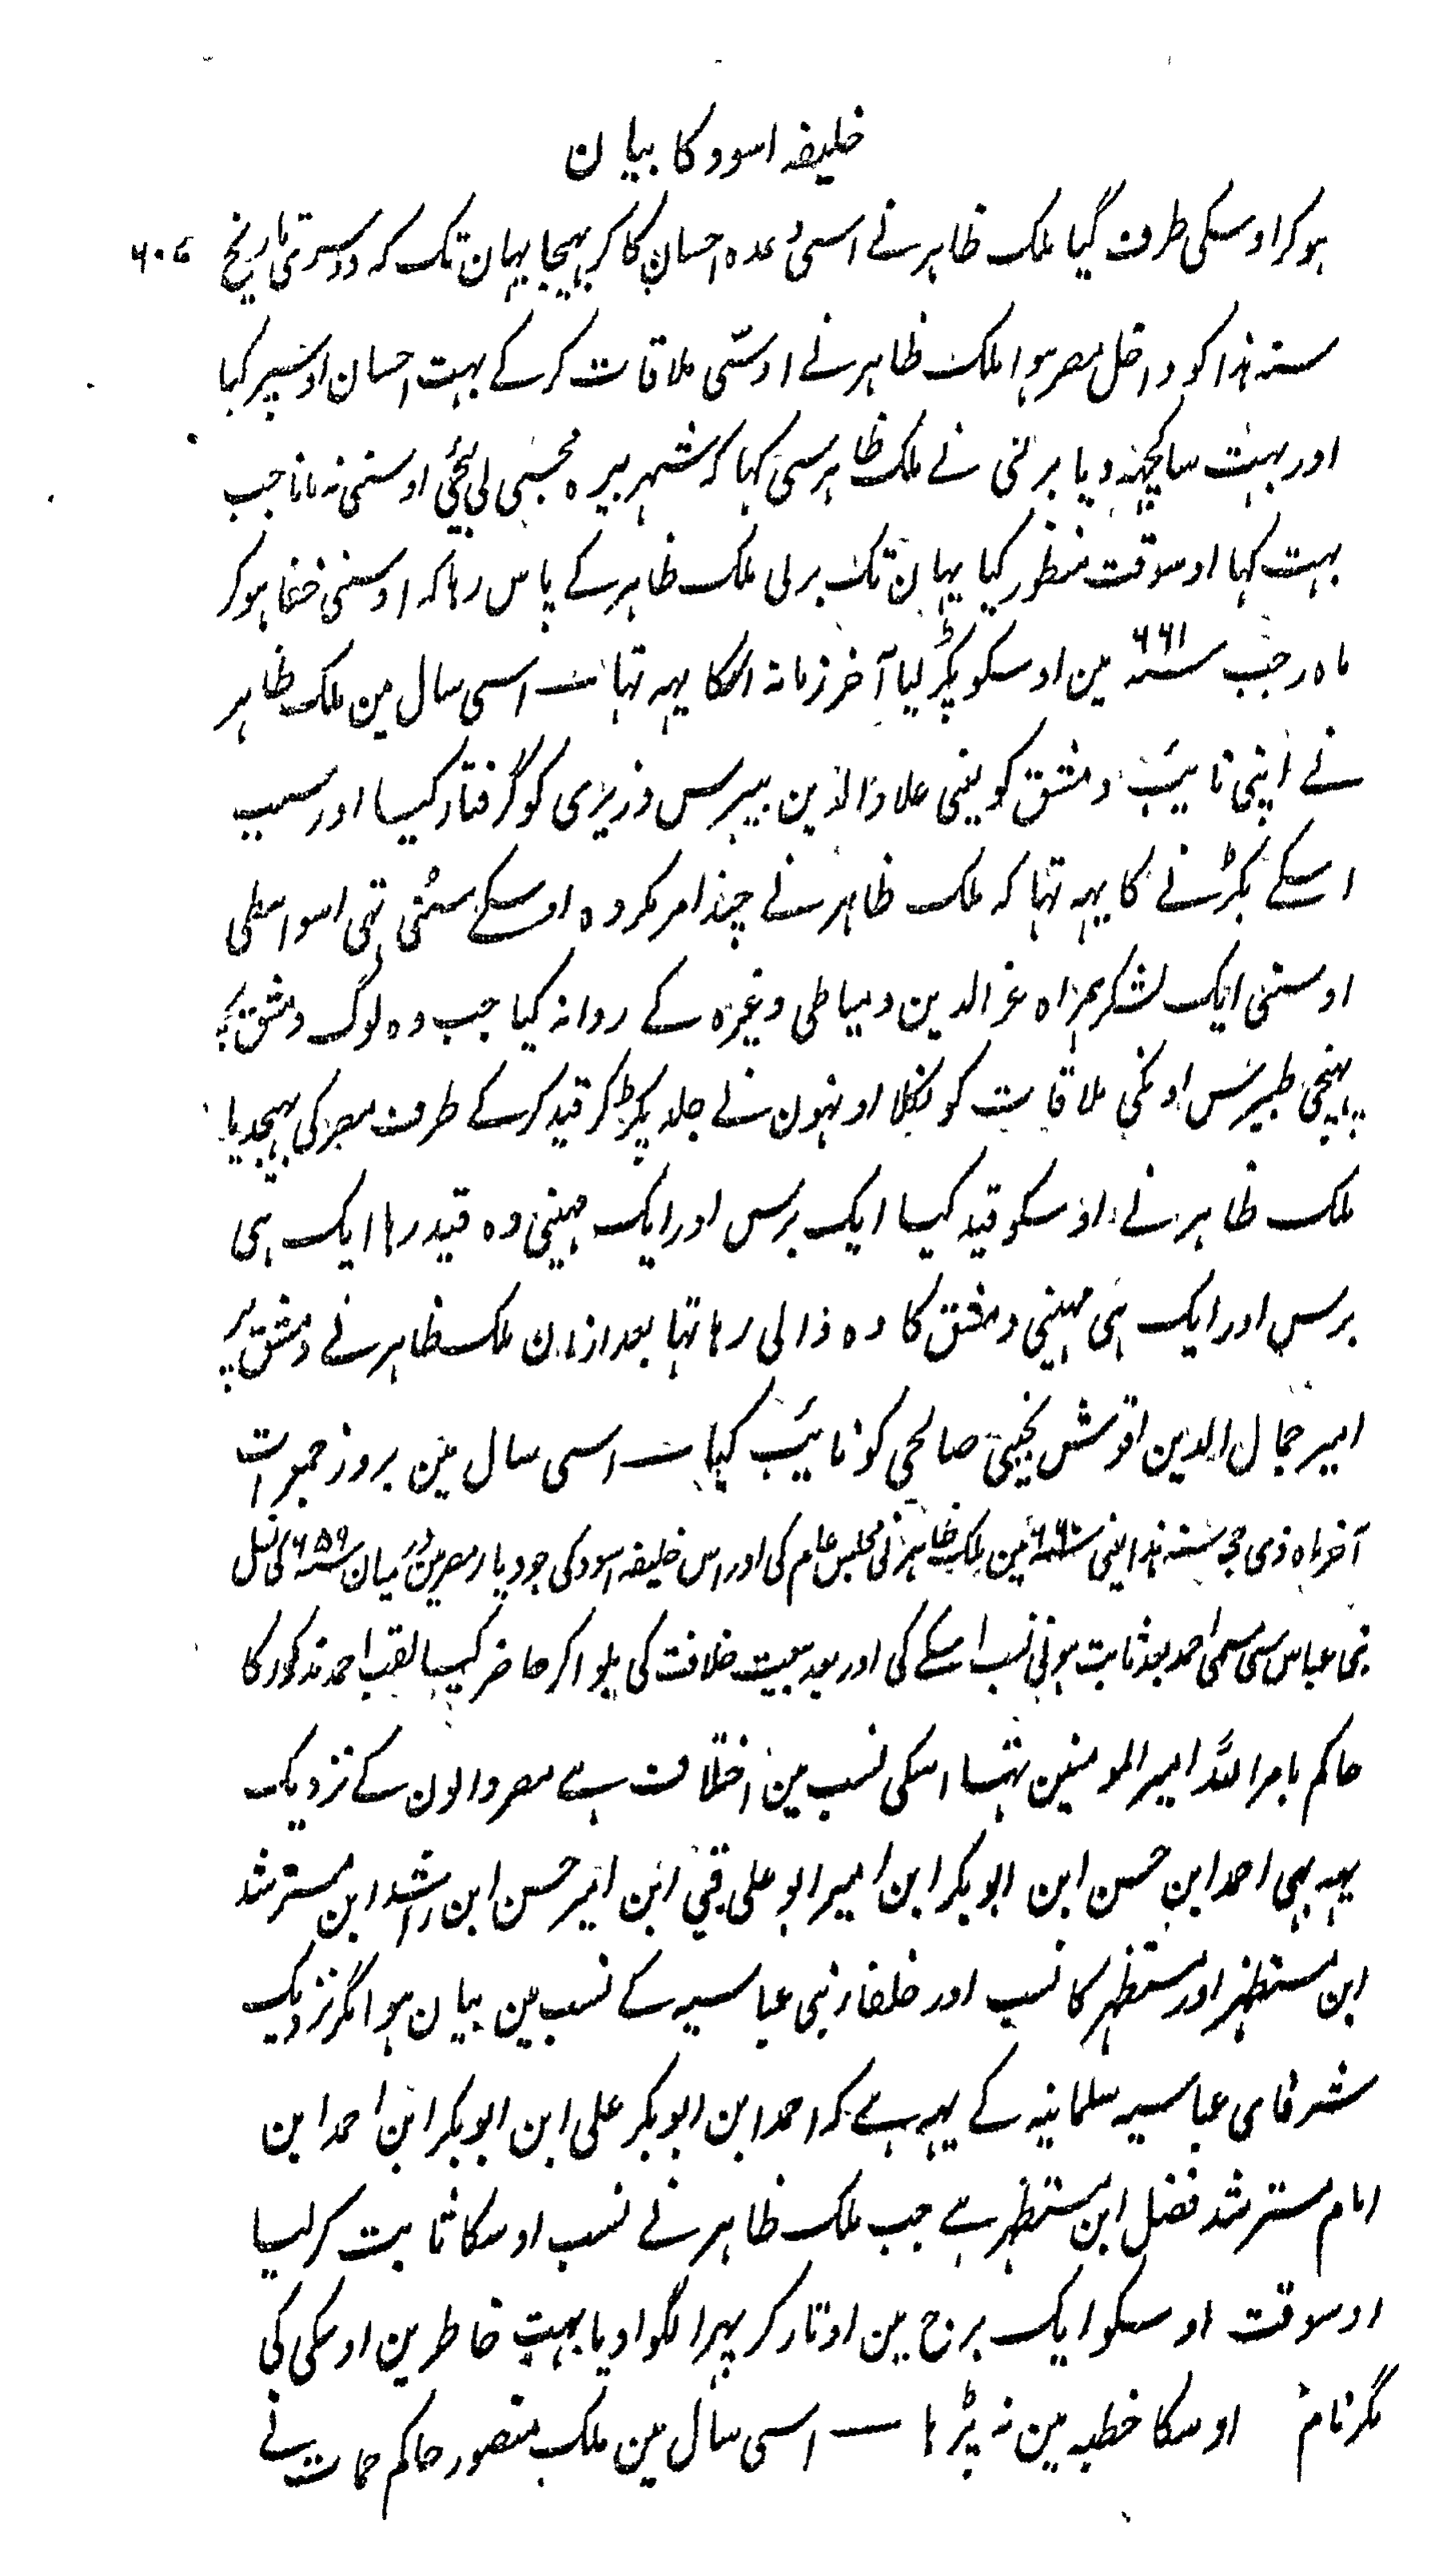 خلیفہ اسود کا بیان
ہوکر اوسکی طرف گیا ملک ظاہر نے اسی وعدہ احسان کا کر بہیجا یہان تک کہ دوسری تاریخ
سنہ ہذا کو داخل مصر ہوا ملک ظاہر نے اوسّی ملاقات کرکے بہت احسان اوسپر کیا
اور بہت سا کچہہ دیا برلی نے ملک ظاہر سی کہا کہ شہر بیرہ مجسی لی لیجئی اوسنی نہ مانا جب
بہت کہا اوسوقت منظور کیا یہان تک برلی ملک ظاہر کے پاس رہا کہ اوسنی خفا ہوکر
ماہ رجب سنہ ۶۶۱ مین اوسکو پکڑ لیا آخر زمانہ اسکا یہہ تہا ــ اسی سال مین ملک ظاہر
نے اپنی نایٔب دمشق کو یعنی علاؤالدین بیبرس وزیری کو گرفتار کیا اور سبب
اسکے پکڑنے کا یہہ تہا کہ ملک ظاہر نے چند امر مکروہ اوسکے سُنی تہی اسواسطی
اوسنی ایک لشکر ہمراہ عزالدین دمیاطی وغیرہ کے روانہ کیا جب وہ لوگ دمشق پر
پہنچی طبیرس اونکی ملاقات کو نکلا اونہون نے جلد پکڑ کر قید کرکے طرف مصر کی بہیجدیا
ملک ظاہر نے اوسکو قید کیا ایک برس اور ایک مہینی وہ قید رہا ایک ہی
برس اور ایک ہی مہینی دمشق کا وہ والی رہا تہا بعد ازان ملک ظاہر نے دمشق پر
امیر جمال الدین اقوش نجیبی صالحی کو نایٔب کیا ــ اسی سال مین بروز جمعرات
آخر ماہ ذی حجہ سنہ ہذا یعنی سنہ ۶۶۰ مین ملک ظاہر نی مجلس عام کی اور اس خلیفہ اسود کی جو دیار مصر مین درمیان سنہ ۶۵۹ کی نسل
بنی عباس سی مسمی احمد بعد ثابت ہونی نسب اسکے کی اور بعد بیعت خلافت کی بلوا کر حاضر کیا لقب احمد مذکور کا
حاکم بامر اللہ امیر المومنین تہا اسکی نسب مین اختلاف ہے مصر والون کے نزدیک
یہہ ہی احمد ابن حسن ابن ابوبکر ابن امیر ابو علی قبی ابن امیر حسن ابن راشد ابن مسترشد
ابن مستظہر اور مستظہر کا نسب اور خلفاء بنی عباسیہ کے نسب مین بیان ہوا مگر نزدیک
شرفای عباسیہ سلمانیہ کے یہہ ہے کہ احمد ابن ابوبکر علی ابن ابوبکر ابن احمد ابن
امام مسترشد فضل ابن مستظہر ہے جب ملک ظاہر نے نسب اوسکا ثابت کرلیا
اوسوقت اوسکو ایک برج مین اوتار کر پہرا لگوا دیا بہت خاطرین اوسکی کی
مگر نام اوسکا خطبہ مین نہ پڑہا ــ اسی سال مین ملک منصور حاکم حمات نے